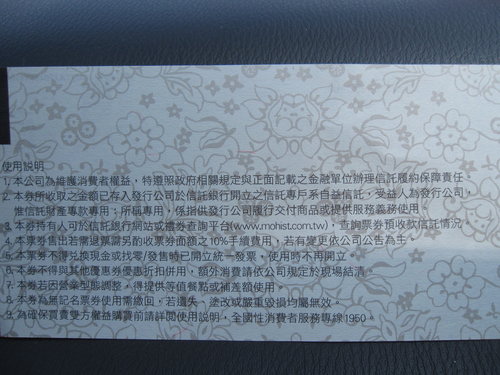 使用説明
1. 本公司為維護消費者權益，特遵照政府相關規定與正面記載之金融單位辦理信託履約保障責任。
2. 本券所收取之金額已存入發行公司於信託銀行開立之信託專戶系自益信託，受益人為發行公司，
惟信託財產專款專用；所稱專用，係指供發行公司履行交付商品或提供服務義務使用
3. 本券持有人可於信託銀行網站或禮券查詢平台(www.mohist.com.tw)，查詢票券預收款信託情況。
4. 本票券售出若需退票需另酌收票券面額之10%手續費用，若有變更依公司公告為主。
5. 本票券不得兌換現金或找零/發售時已開立統一發票，使用時不再開立。
6. 本券不得與其他優惠券優惠折扣併用，額外消費請依公司規定於現場結清。
7. 本券若因營業型態調整，得提供等值餐點或補差額使用。
8. 本券為無記名票券使用需繳回，若遺失、塗改或嚴重毀損均屬無效。
9. 為確保買賣雙方權益購買前請詳閱使用說明，全國性消費者服務專線1950。